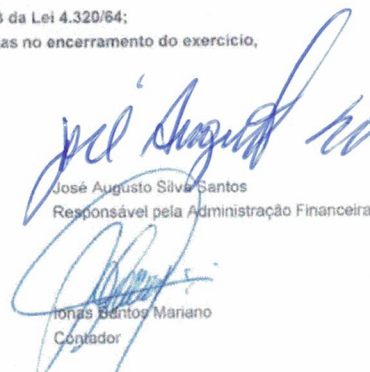 da Lei 4.320/64;
as no encerramento do exercício,
José Augusto
José Augusto Silva Santos
Responsável pela Administração Financeira
Ionas Santos Mariano
Contador